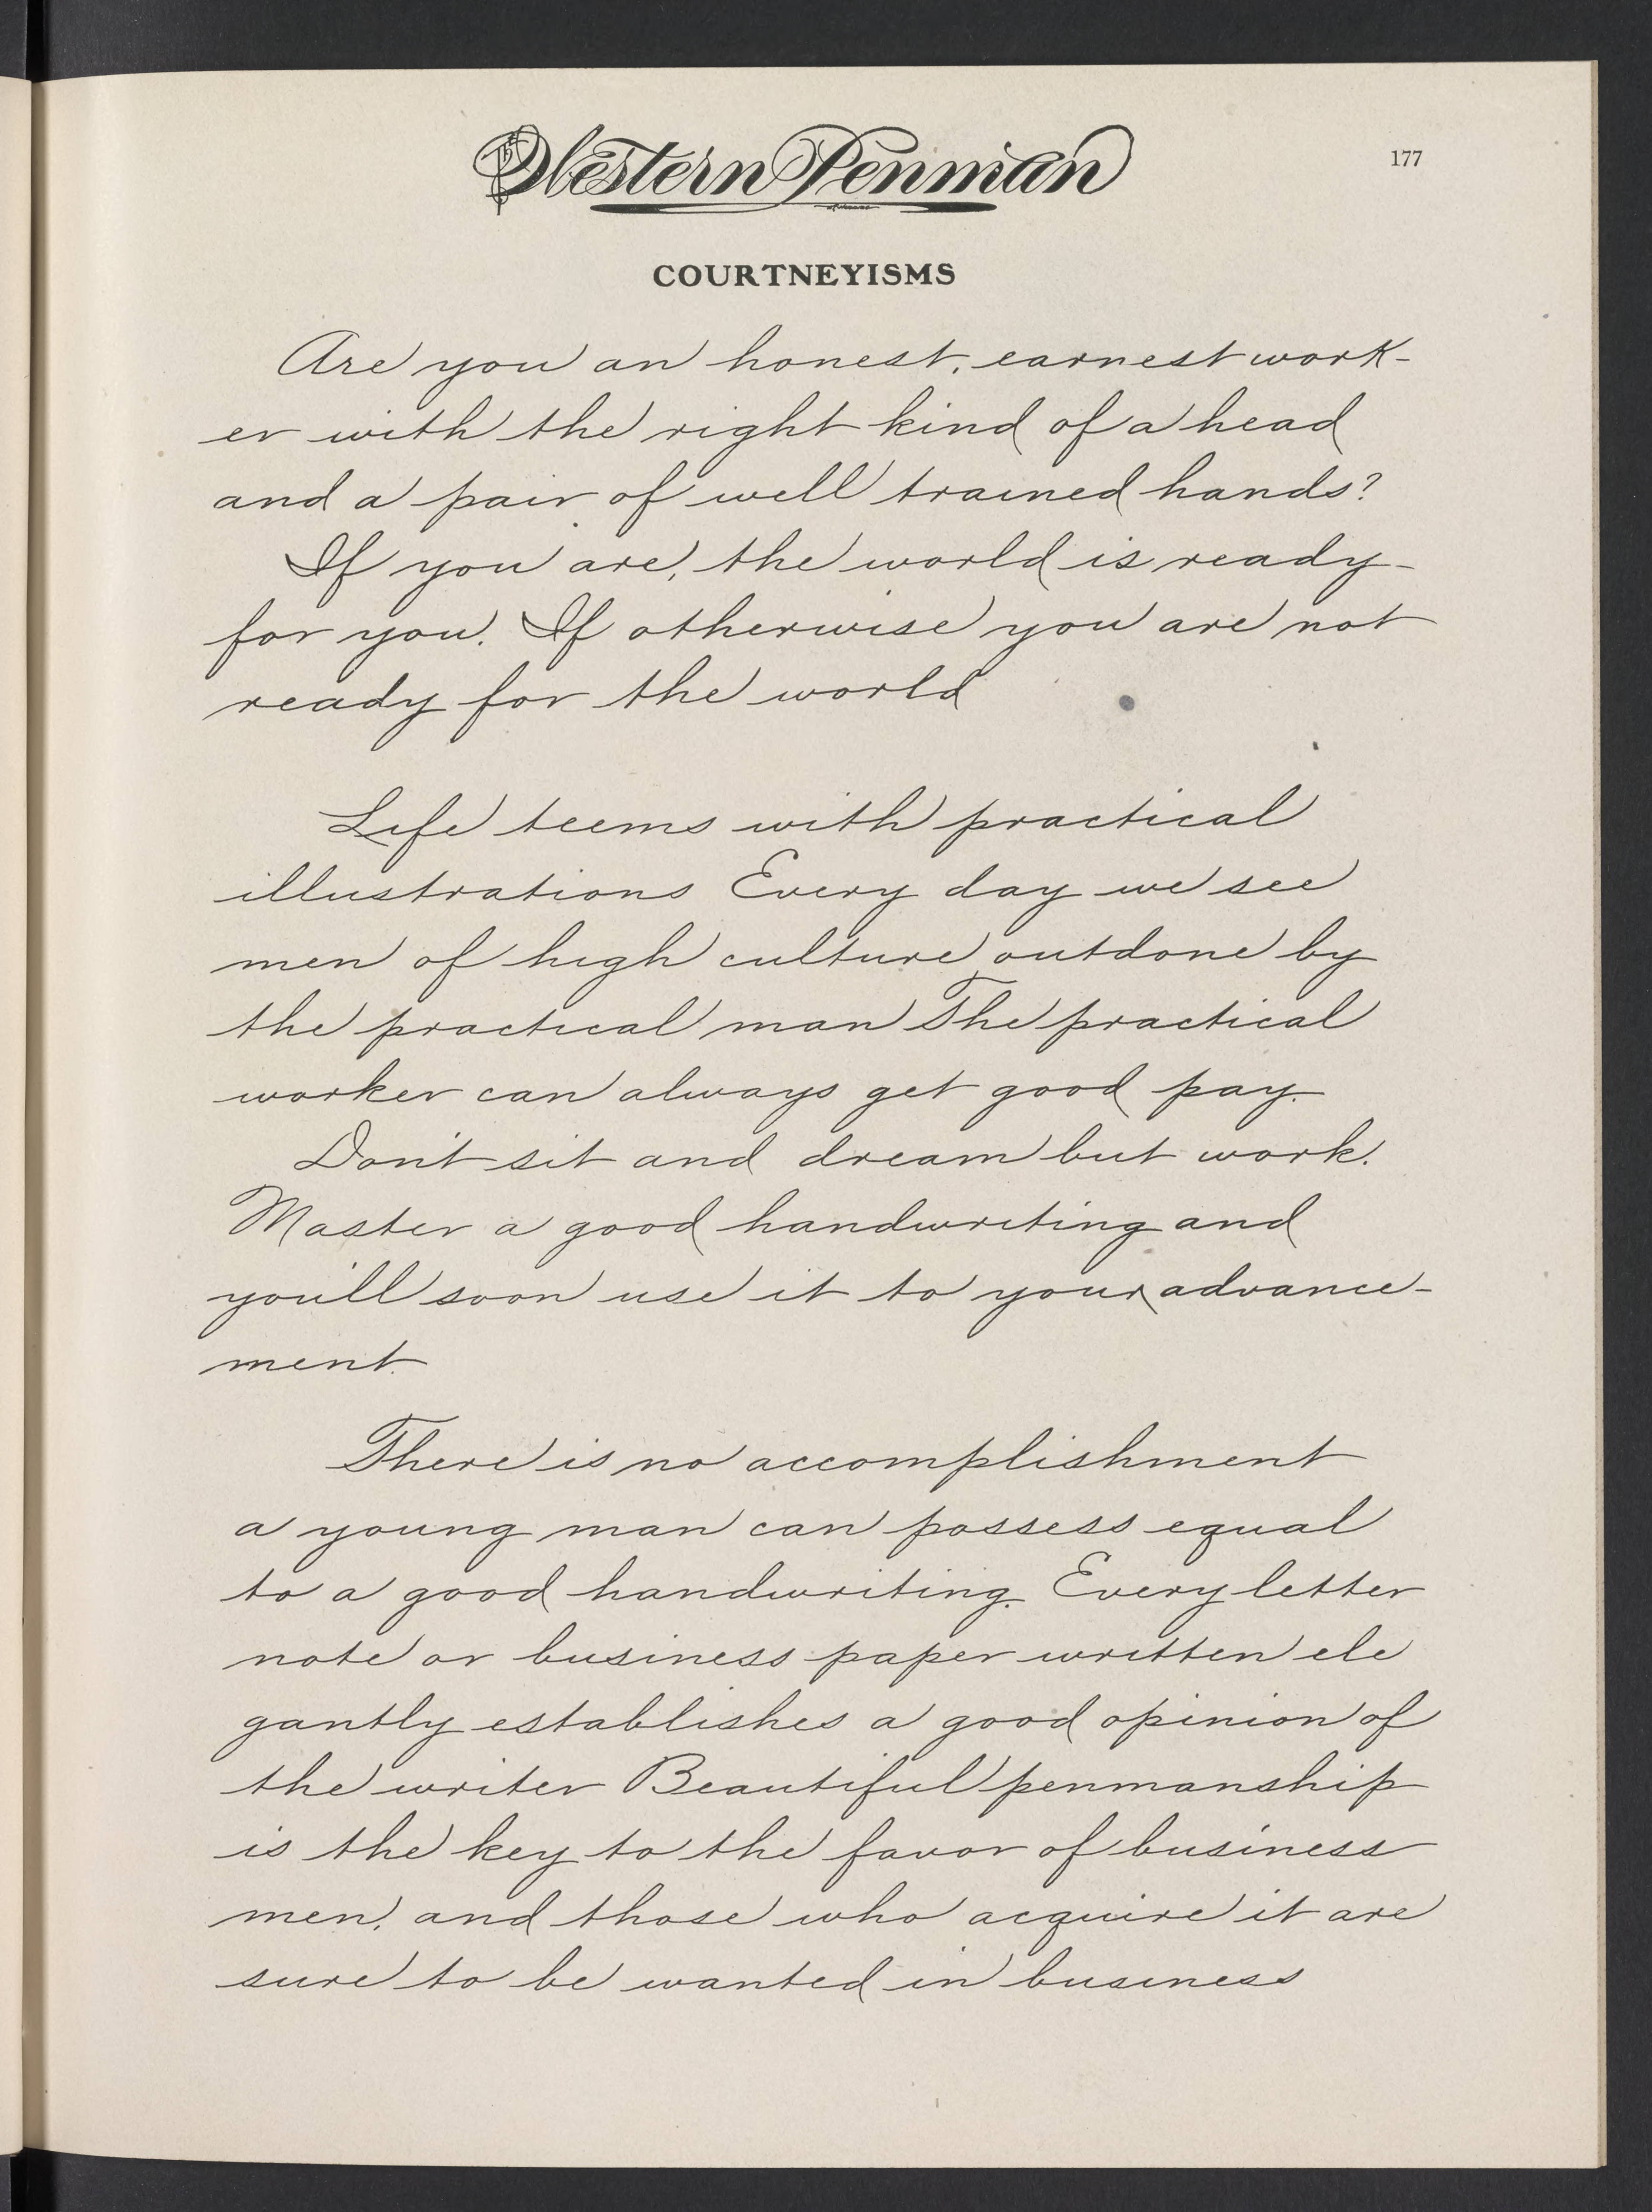 The Western Penman
177
COURTNEYISMS
Are you an honest, earnest work-
er with the right kind of a head
and a pair of well trained hands?
If you are, the world is ready
for you. If otherwise you are not
ready for the world
Life teems with practical
illustrations Every day we see
men of high culture outdone by
the practical man The practical
worker can always get good pay.
Don't sit and dream but work.
Master a good handwriting and
you'll soon use it to your advance-
ment.
There is no accomplishment
a young man can possess equal
to a good handwriting. Every letter
note or business paper written ele
gantly establishes a good opinion of
the writer Beautiful penmanship
is the key to the favor of business
men, and those who acquire it are
sure to be wanted in business